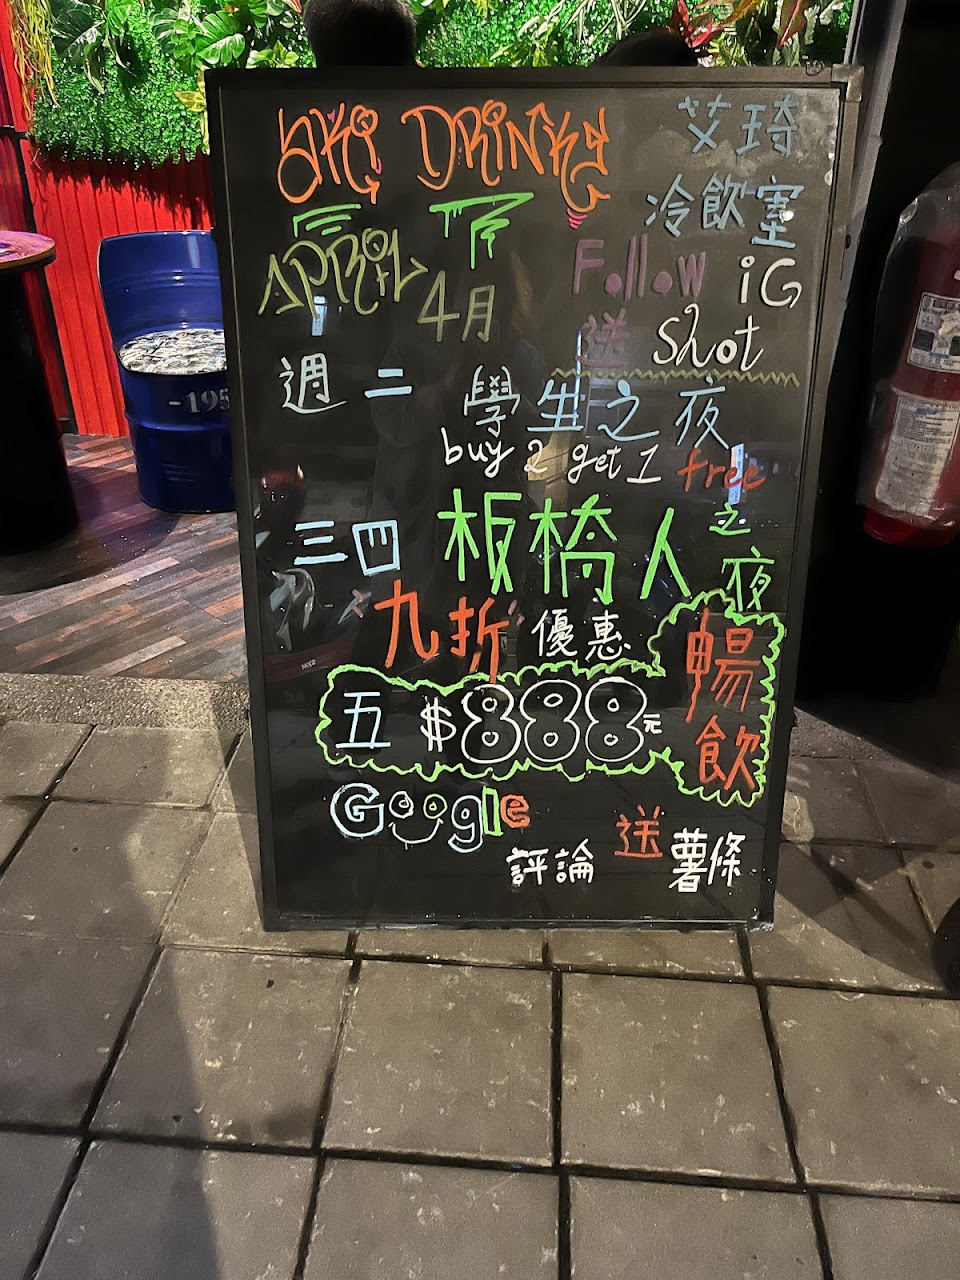 AKI DRINK
艾琦
冷飲室
APRIL 4月
Follow iG
送 shot
週二 學生之夜
buy 2 get 1 free
三四 板橋人之夜
九折 優惠
五 $888元 暢飲
Google
評論 送 薯條
-195